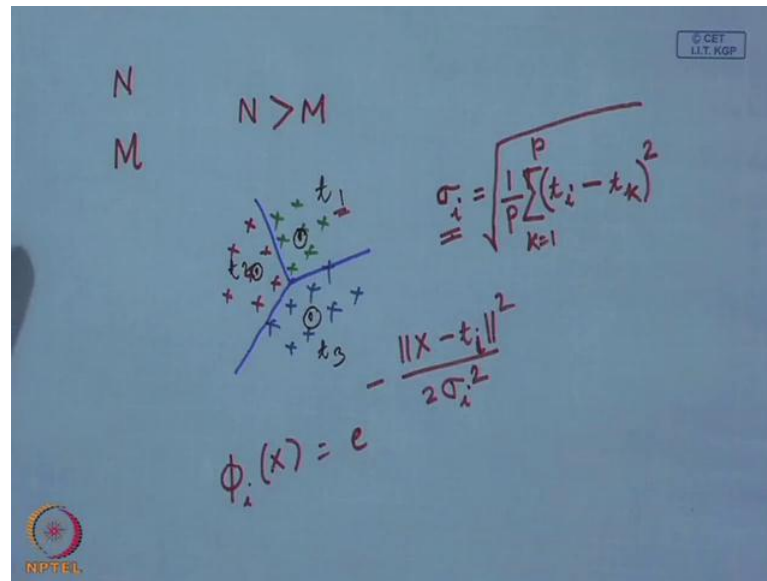 © CET
I.I.T. KGP
N
N > M
M
t₁
t₂
t₃
σᵢ = √(1/P ∑_{k=1}^{P} (tᵢ - tₖ)²)
φᵢ(X) = e^{- ||X - tᵢ||² / 2σᵢ²}
NPTEL